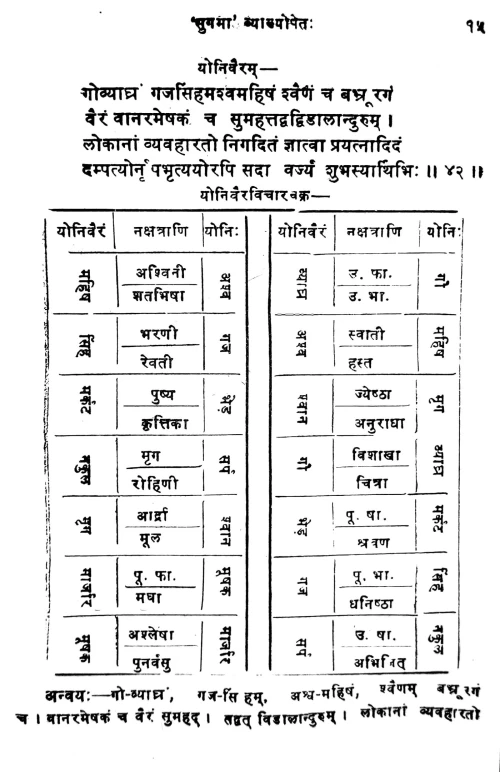 'सुषमा' व्याख्योपेतः
१५
योनिवैरम्—
गोव्याघ्रं गजसिंहमश्वमहिषं श्वैणं च बभ्रूरगं
वैरं वानरमेषकं च सुमहत्तद्वद्विडालान्दुरुम् ।
लोकानां व्यवहारतो निगदितं ज्ञात्वा प्रयत्नादिदं
दम्पत्योर्नृपभृत्ययोरपि सदा वर्ज्यं शुभस्यार्थिभिः ॥ ४२ ॥
योनिवैरविचारचक्र—
योनिवैरं नक्षत्राणि योनिः योनिवैरं नक्षत्राणि योनिः
महिष अश्विनी अश्व व्याघ्र उ. फा. गौ
शतभिषा उ. भा.
सिंह भरणी गज अश्व स्वाती महिष
रेवती हस्त
मर्कट पुष्य भेड़ श्वान ज्येष्ठा मृग
कृत्तिका अनुराधा
नकुल मृग सर्प गौ विशाखा व्याघ्र
रोहिणी चित्रा
मृग आर्द्रा श्वान भेड़ पू. षा. मर्कट
मूल श्रवण
मार्जार पू. फा. मूषक गज पू. भा. सिंह
मघा धनिष्ठा
मूषक अश्लेषा मार्जार सर्प उ. षा. नकुल
पुनर्वसु अभिजित्
अन्वयः—गो-व्याघ्रं, गज-सिंहम्, अश्व-महिषं, श्वैणम् बभ्रूरगं
च । वानरमेषकं च वैरं सुमहद् । तद्वत् विडालान्दुरुम् । लोकानां व्यवहारतो